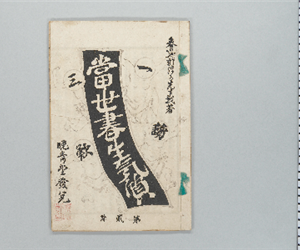 春のやおぼろ先生戯著
一
讀
三
歎
當世書生氣質
晩青堂發兌
第貳號